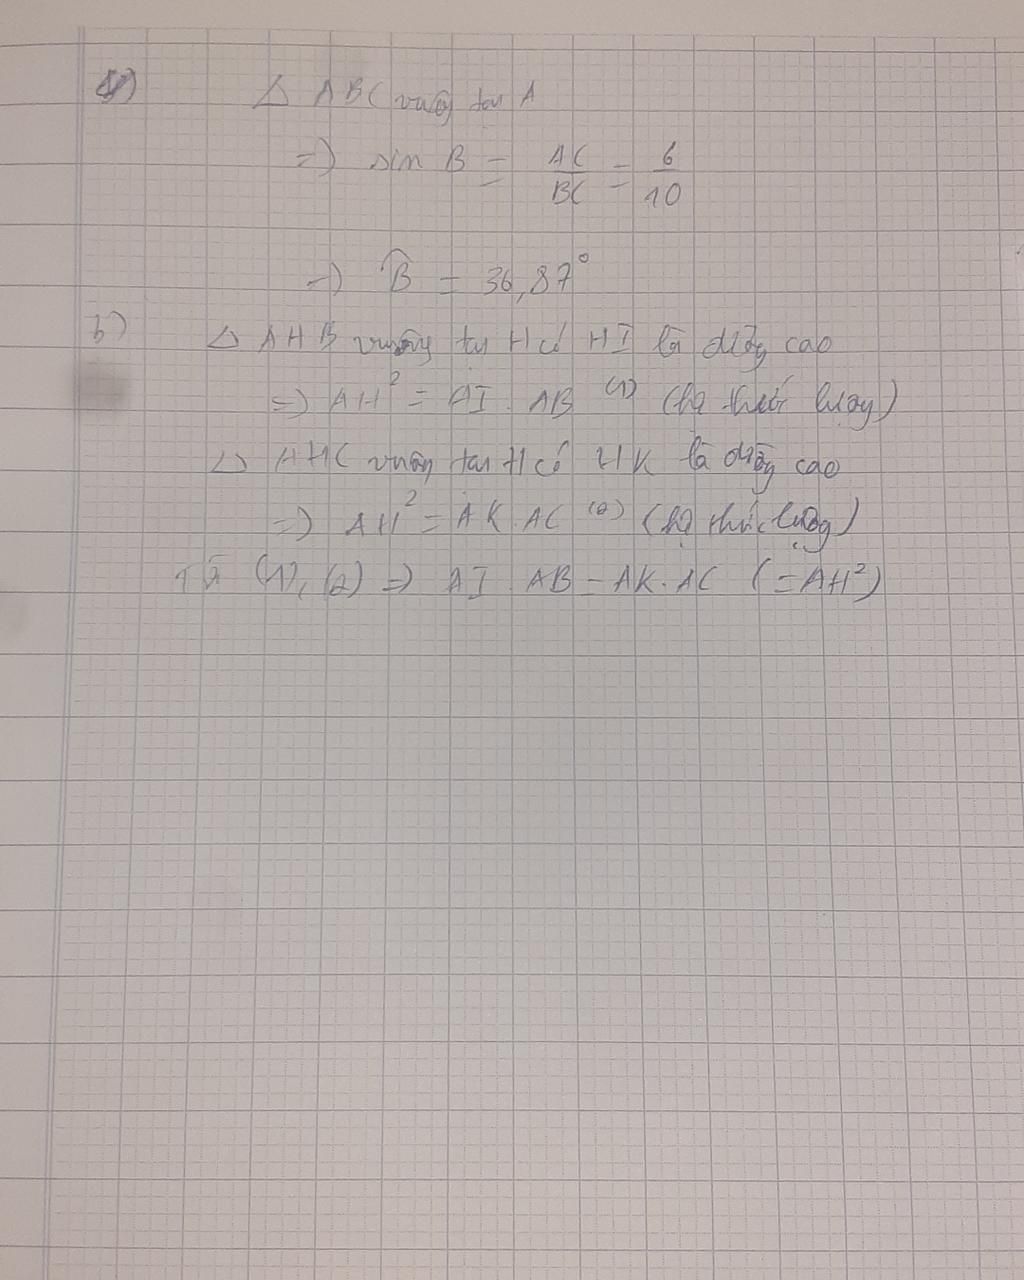 a) Δ ABC vuông tại A
=> sin B = AC/BC = 6/10
=> B̂ = 36,87°
b) Δ AHB vuông tại H có HI là đường cao
=> AH² = AI . AB (1) (hệ thức lượng)
Δ AHC vuông tại H có HK là đường cao
=> AH² = AK . AC (2) (hệ thức lượng)
Từ (1), (2) => AI . AB = AK . AC (= AH²)